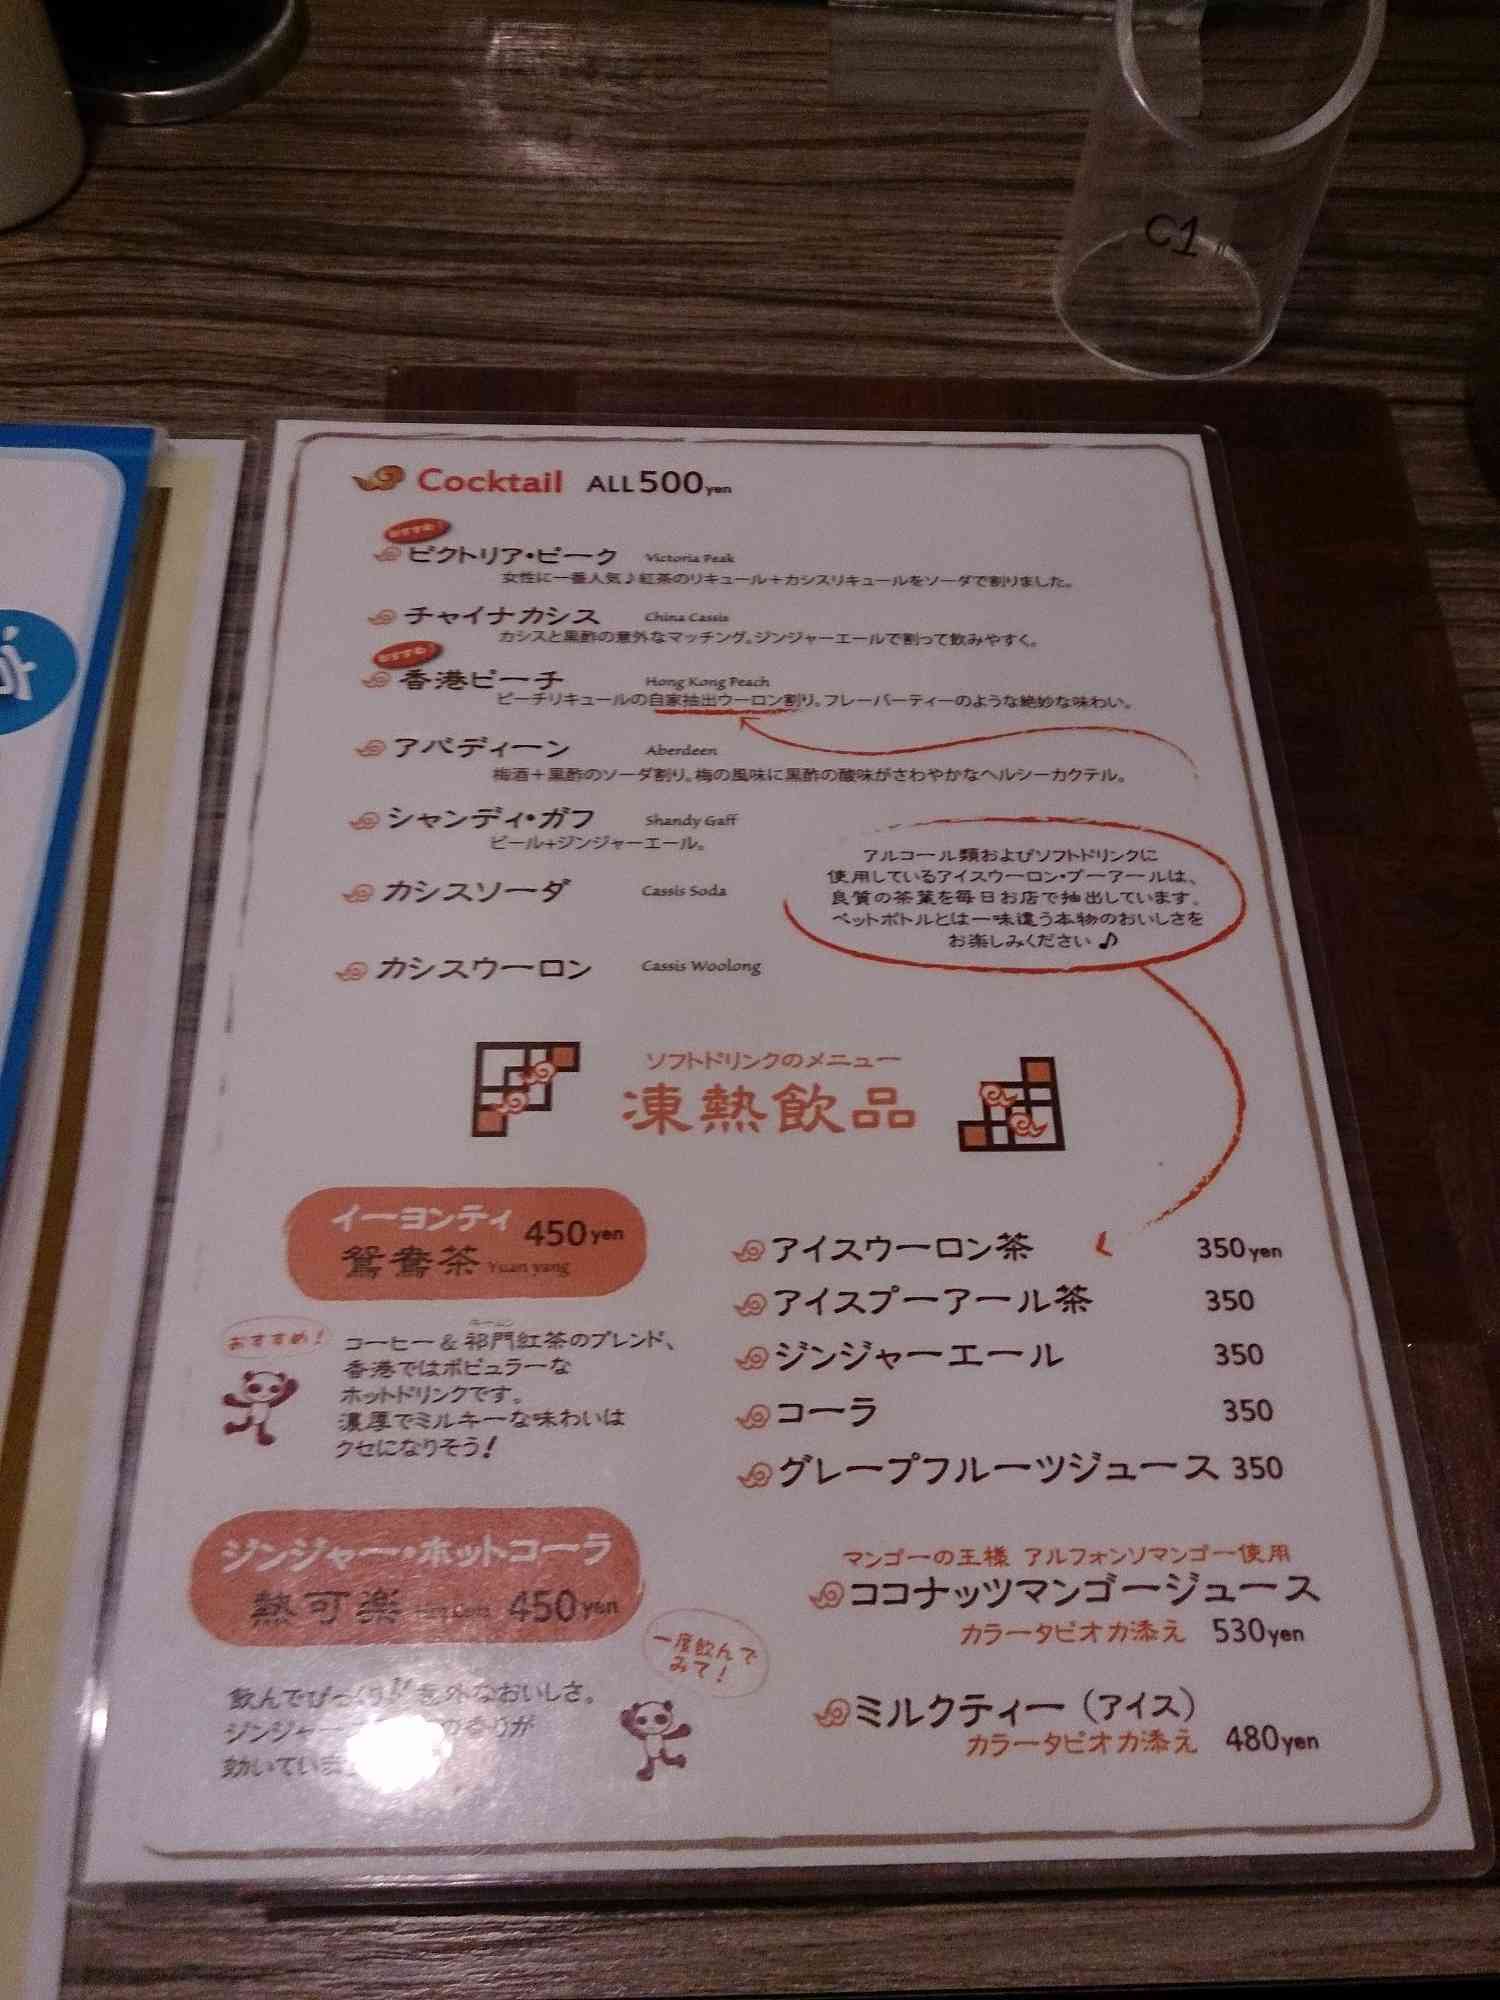 C1
Cocktail ALL500yen
おすすめ!
ビクトリア・ピーク Victoria Peak
女性に一番人気♪紅茶のリキュール+カシスリキュールをソーダで割りました。
チャイナカシス China Cassis
カシスと黒酢の意外なマッチング。ジンジャーエールで割って飲みやすく。
おすすめ!
香港ピーチ Hong Kong Peach
ピーチリキュールの自家抽出ウーロン割り。フレーバーティーのような絶妙な味わい。
アバディーン Aberdeen
梅酒+黒酢のソーダ割り。梅の風味に黒酢の酸味がさわやかなヘルシーカクテル。
シャンディ・ガフ Shandy Gaff
ビール+ジンジャーエール。
カシスソーダ Cassis Soda
カシスウーロン Cassis Woolong
アルコール類およびソフトドリンクに
使用しているアイスウーロン・プーアールは、
良質の茶葉を毎日お店で抽出しています。
ペットボトルとは一味違う本物のおいしさを
お楽しみください♪
ソフトドリンクのメニュー
凍熱飲品
イーヨンティ 450yen
鴛鴦茶 Yuan yang
おすすめ!
コーヒー&祁門紅茶のブレンド、
香港ではポピュラーな
ホットドリンクです。
濃厚でミルキーな味わいは
クセになりそう!
ジンジャー・ホットコーラ
熱可楽 450yen
一度飲んで
みて!
飲んでびっくり!!意外なおいしさ。
ジンジャー の香りが
効いていま
アイスウーロン茶 350yen
アイスプーアール茶 350
ジンジャーエール 350
コーラ 350
グレープフルーツジュース 350
マンゴーの王様 アルフォンソマンゴー使用
ココナッツマンゴージュース
カラータピオカ添え 530yen
ミルクティー(アイス)
カラータピオカ添え 480yen